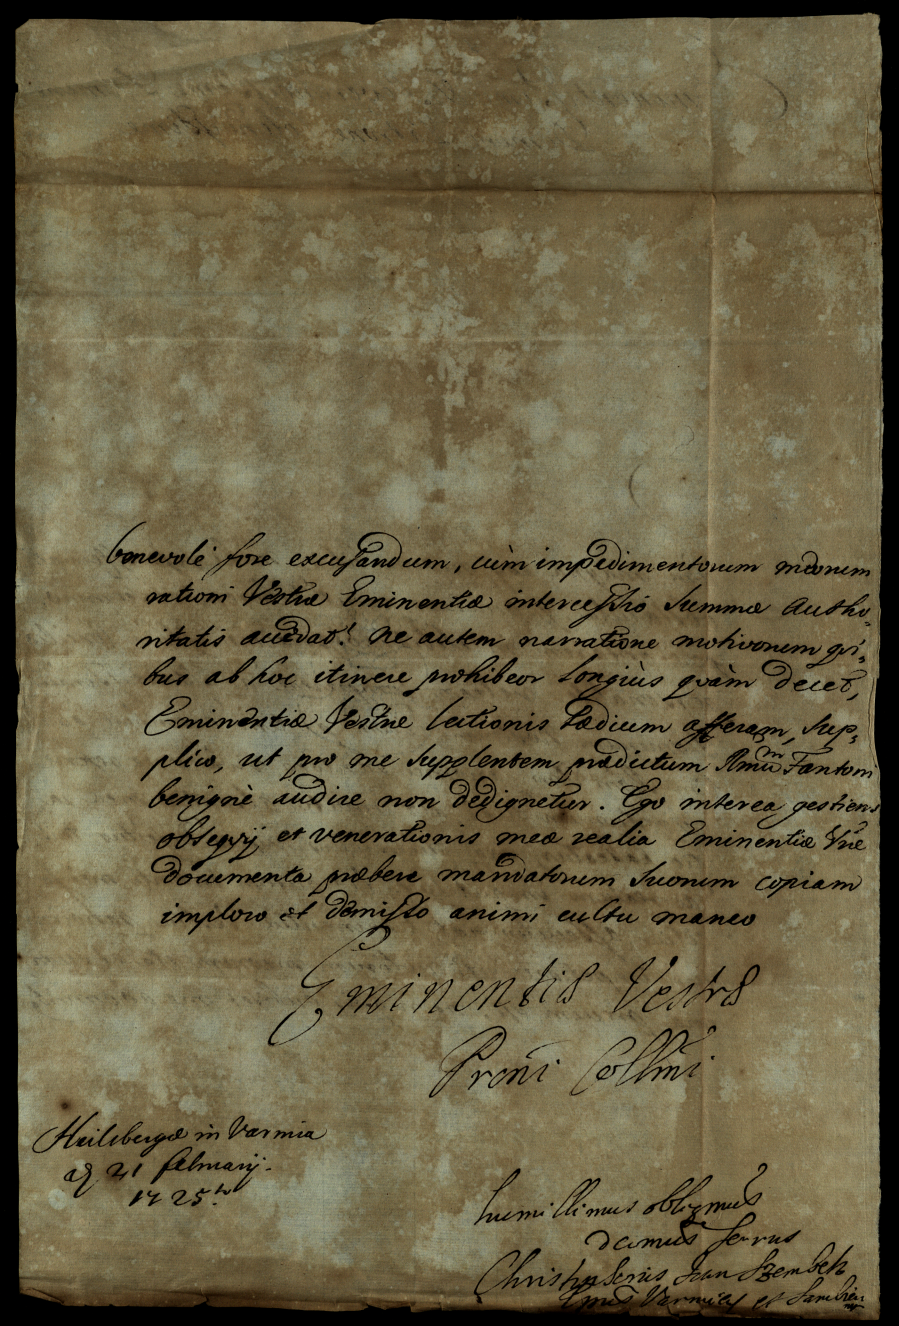 benevolè fore excusandum, cùm impedimentorum meorum
rationi Vestræ Eminentiæ intercessio summæ Autho-
ritatis accedat. Ne autem narratione motivorum qvi-
bus ab hoc itinere prohibeor longiùs quàm decet,
Eminentiæ Vestræ lectionis tædium afferam, sup-
plico, ut pro me supplentem prædictum Rmum Fantoni
benignè audire non dedignetur. Ego interea gestiens
obseqvij et venerationis meæ realia Eminentiæ Vræ
documenta præbere mandatorum suorum copiam
imploro et demisso animi cultu maneo
Eminentiæ Vestræ
Heilsbergæ in Varmia
21 februarij
1725to
humillimus
servus
Christophorus Jan Szembek
Varmien et Sambien